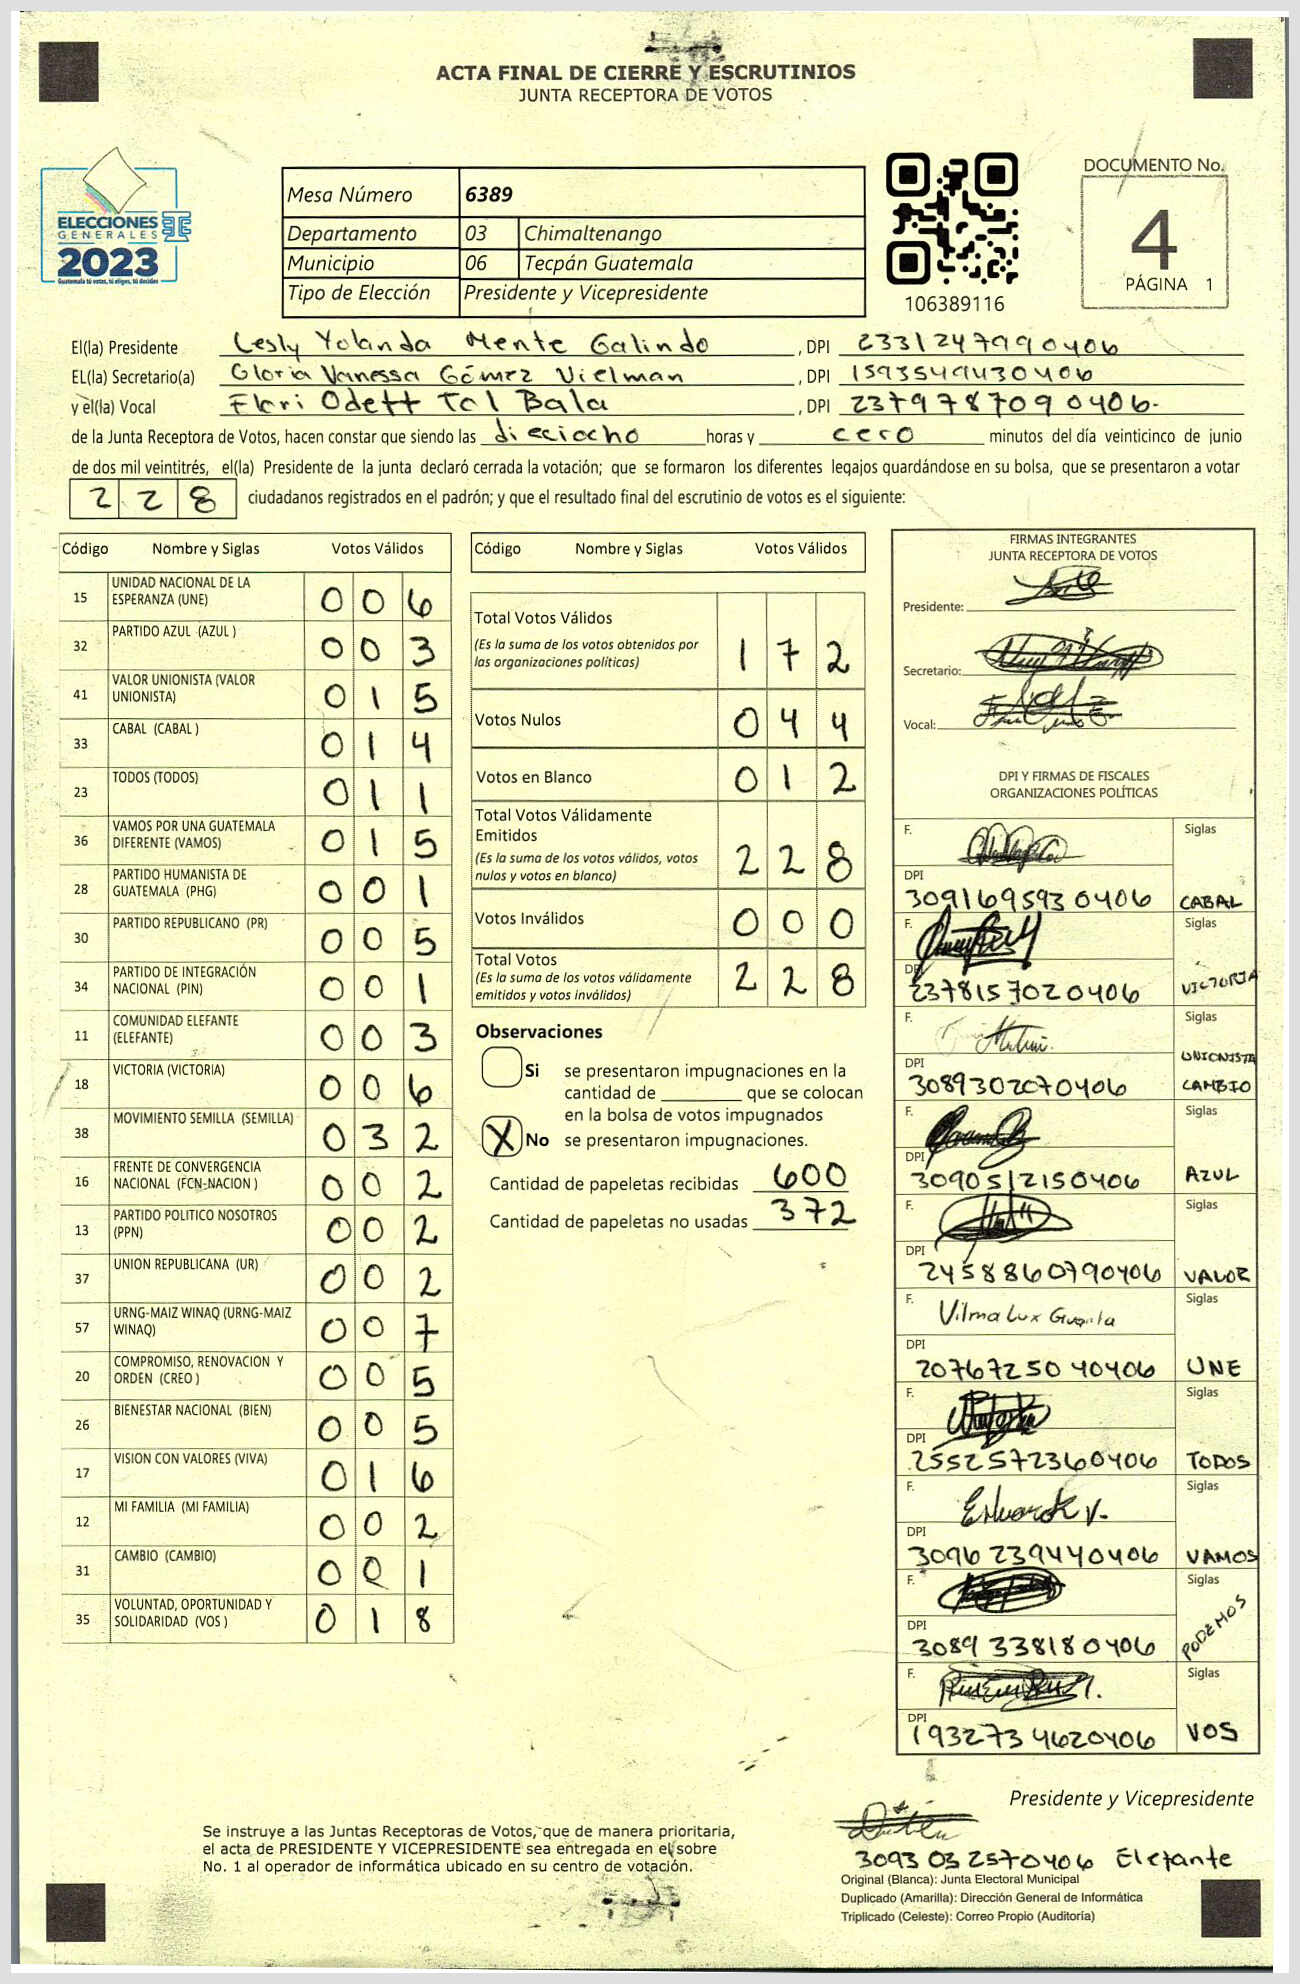 ACTA FINAL DE CIERRE Y ESCRUTINIOS
JUNTA RECEPTORA DE VOTOS
ELECCIONES
GENERALES
2023
Guatemala tú votas, tú eliges, tú decides
Mesa Número 6389
Departamento 03 Chimaltenango
Municipio 06 Tecpán Guatemala
Tipo de Elección Presidente y Vicepresidente
106389116
DOCUMENTO No.
4
PÁGINA 1
El(la) Presidente Lesly Yolanda Mente Galindo, DPI 2331247990406
EL(la) Secretario(a) Gloria Vanessa Gómez Vielman, DPI 1593549430406
y el(la) Vocal Flori Odett Tol Bala, DPI 2379787090406.
de la Junta Receptora de Votos, hacen constar que siendo las dieciocho horas y cero minutos del día veinticinco de junio
de dos mil veintitrés, el(la) Presidente de la junta declaró cerrada la votación; que se formaron los diferentes legajos quardándose en su bolsa, que se presentaron a votar
228 ciudadanos registrados en el padrón; y que el resultado final del escrutinio de votos es el siguiente:
Código Nombre y Siglas Votos Válidos
15 UNIDAD NACIONAL DE LA ESPERANZA (UNE) 006
32 PARTIDO AZUL (AZUL ) 003
41 VALOR UNIONISTA (VALOR UNIONISTA) 015
33 CABAL (CABAL ) 014
23 TODOS (TODOS) 011
36 VAMOS POR UNA GUATEMALA DIFERENTE (VAMOS) 015
28 PARTIDO HUMANISTA DE GUATEMALA (PHG) 001
30 PARTIDO REPUBLICANO (PR) 005
34 PARTIDO DE INTEGRACIÓN NACIONAL (PIN) 001
11 COMUNIDAD ELEFANTE (ELEFANTE) 003
18 VICTORIA (VICTORIA) 006
38 MOVIMIENTO SEMILLA (SEMILLA) 032
16 FRENTE DE CONVERGENCIA NACIONAL (FCN-NACION ) 002
13 PARTIDO POLITICO NOSOTROS (PPN) 002
37 UNION REPUBLICANA (UR) 002
57 URNG-MAIZ WINAQ (URNG-MAIZ WINAQ) 007
20 COMPROMISO, RENOVACION Y ORDEN (CREO ) 005
26 BIENESTAR NACIONAL (BIEN) 005
17 VISION CON VALORES (VIVA) 016
12 MI FAMILIA (MI FAMILIA) 002
31 CAMBIO (CAMBIO) 001
35 VOLUNTAD, OPORTUNIDAD Y SOLIDARIDAD (VOS ) 018
Código Nombre y Siglas Votos Válidos
Total Votos Válidos 172
(Es la suma de los votos obtenidos por
las organizaciones políticas)
Votos Nulos 044
Votos en Blanco 012
Total Votos Válidamente
Emitidos 228
(Es la suma de los votos válidos, votos
nulos y votos en blanco)
Votos Inválidos 000
Total Votos 228
(Es la suma de los votos válidamente
emitidos y votos inválidos)
Observaciones
Si se presentaron impugnaciones en la
cantidad de ________ que se colocan
en la bolsa de votos impugnados
X No se presentaron impugnaciones.
Cantidad de papeletas recibidas 600
Cantidad de papeletas no usadas 372
FIRMAS INTEGRANTES
JUNTA RECEPTORA DE VOTOS
Presidente:
Secretario:
Vocal:
DPI Y FIRMAS DE FISCALES
ORGANIZACIONES POLÍTICAS
F. Siglas
DPI
3091695930406 CABAL
F. Siglas
DPI
2378157020406 VICTORIA
F. Siglas
DPI UNIONISTA
3089302070406 CAMBIO
F. Siglas
DPI
3090512150406 AZUL
F. Siglas
DPI
2458860790406 VALOR
F. Vilma Lux Siglas
DPI
2076725040406 UNE
F. Siglas
DPI
2552572360406 TODOS
F. Siglas
DPI
3096239440406 VAMOS
F. Siglas
DPI
3089338180406 PODEMOS
F. Siglas
DPI
1932734620406 VOS
Presidente y Vicepresidente
3093032570406 Elefante
Se instruye a las Juntas Receptoras de Votos, que de manera prioritaria,
el acta de PRESIDENTE Y VICEPRESIDENTE sea entregada en el sobre
No. 1 al operador de informática ubicado en su centro de votación.
Original (Blanca): Junta Electoral Municipal
Duplicado (Amarilla): Dirección General de Informática
Triplicado (Celeste): Correo Propio (Auditoría)